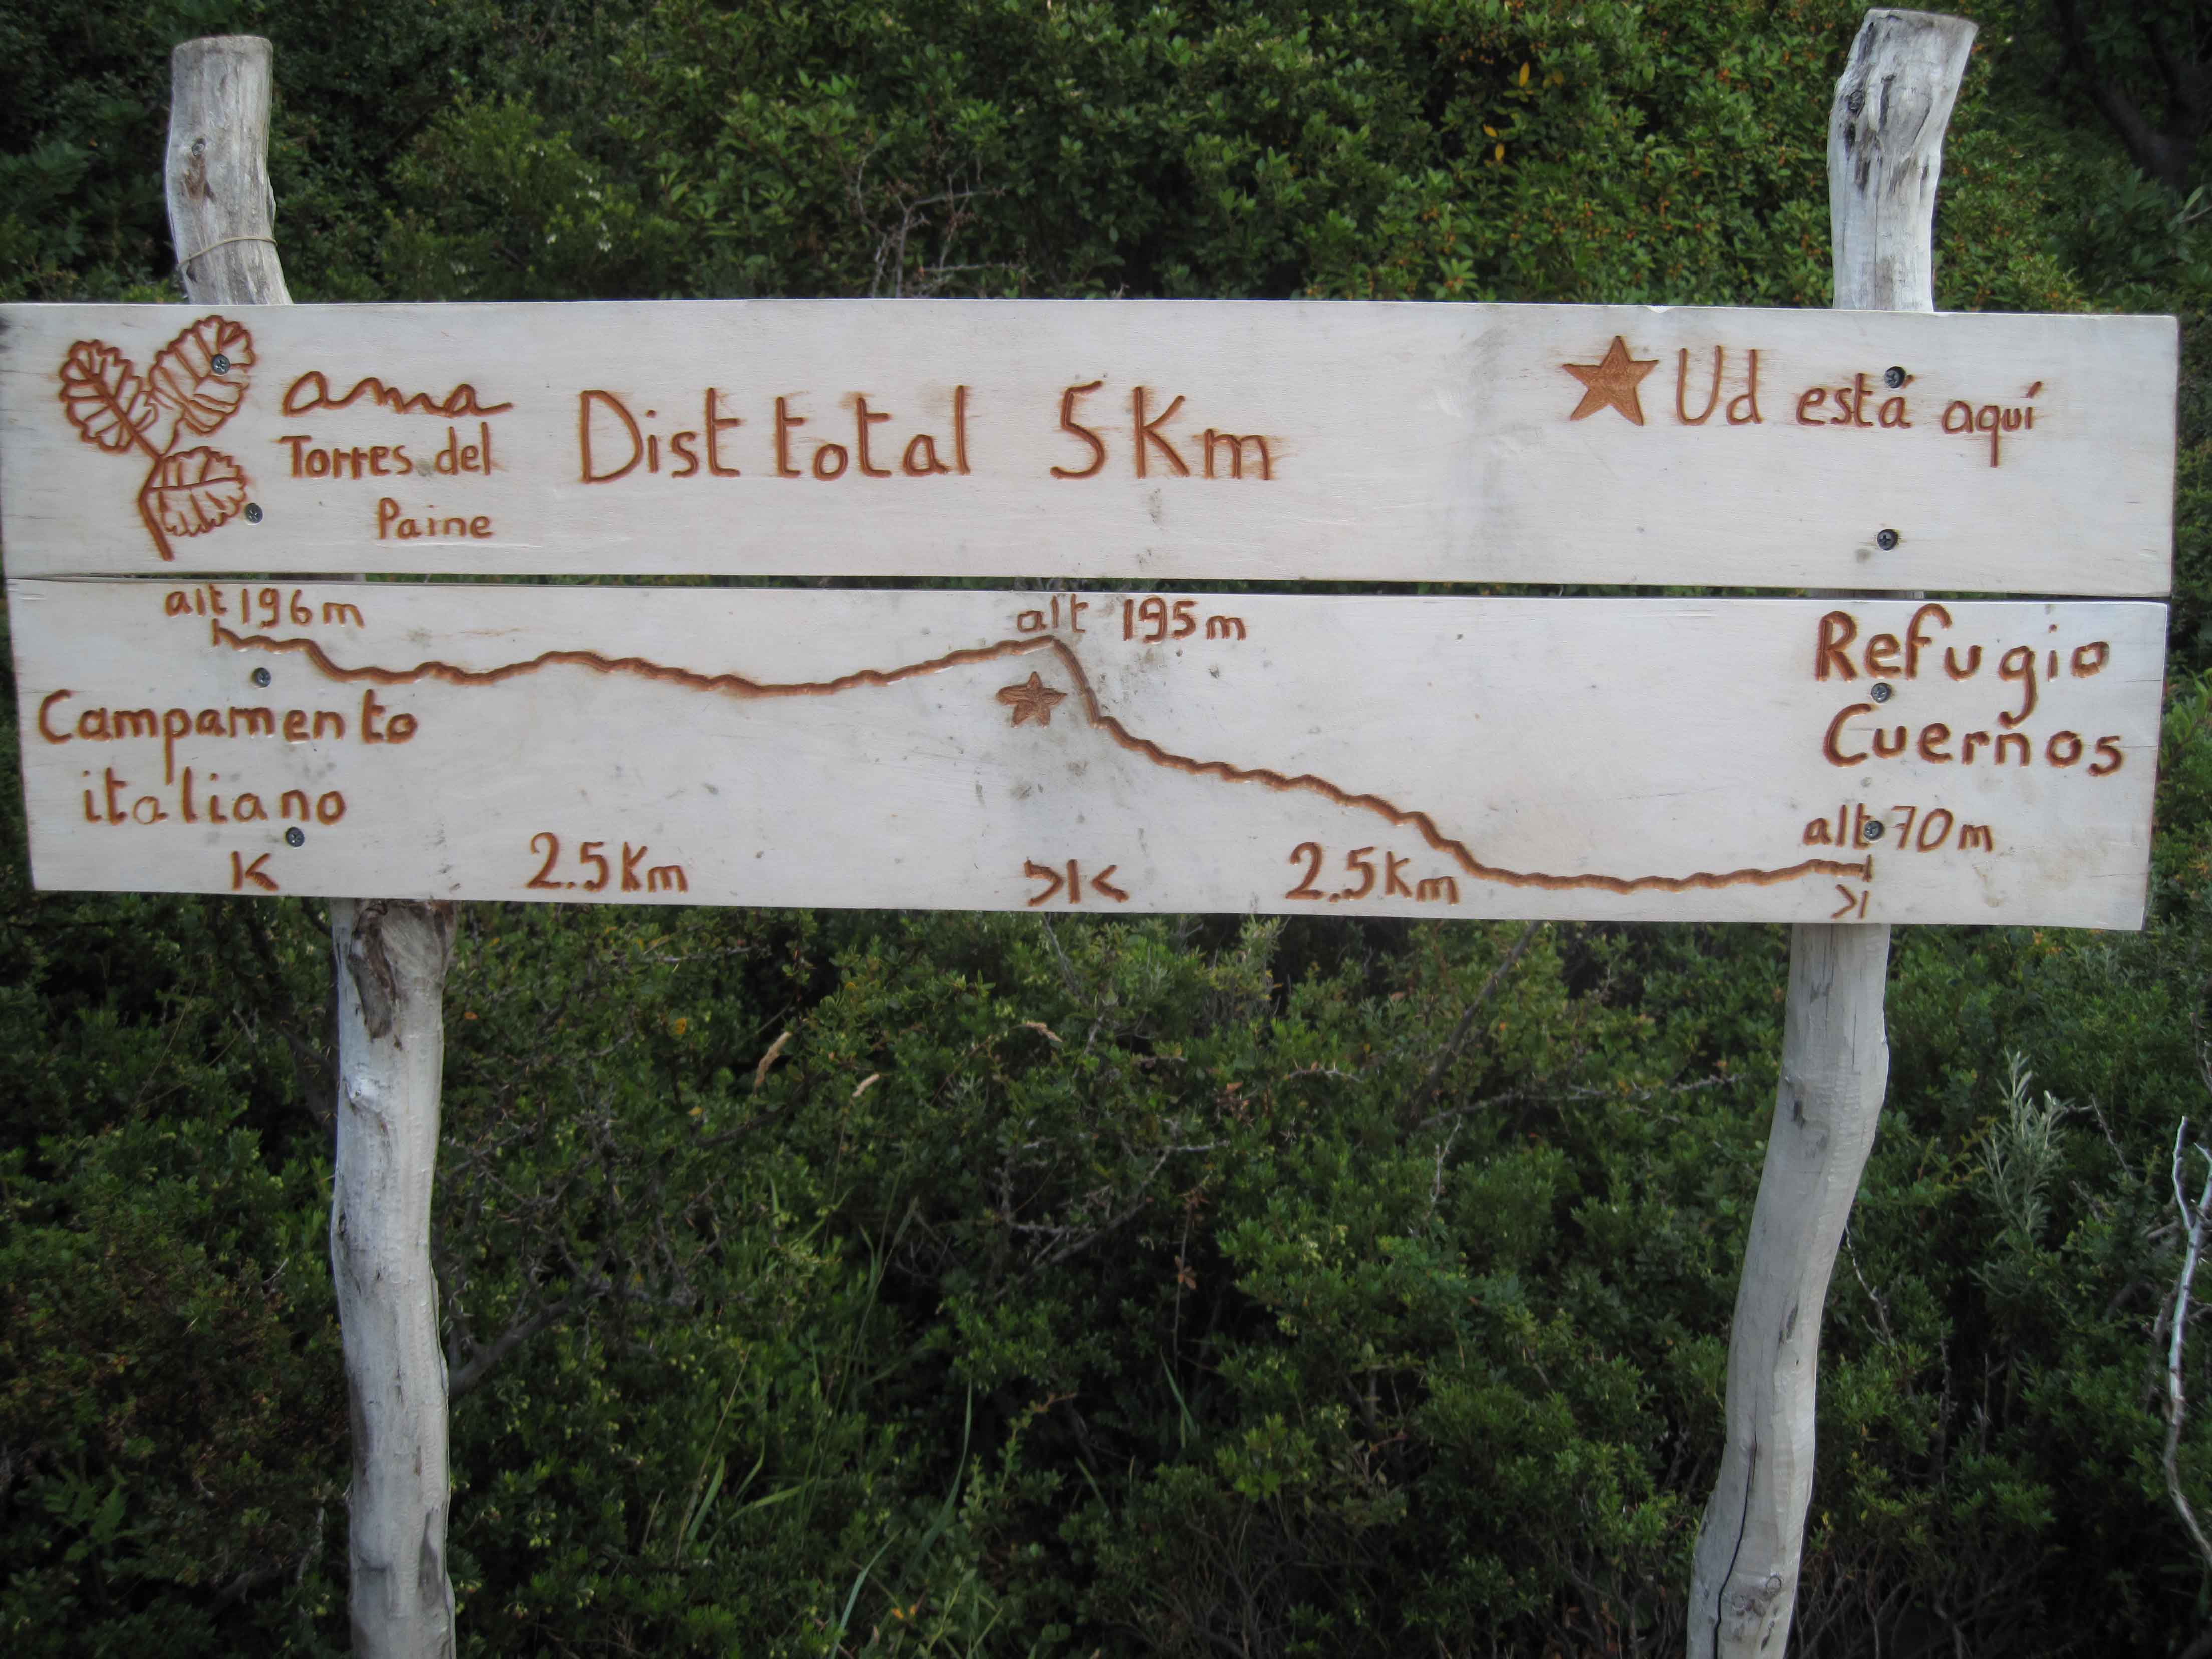 ama
Torres del
Paine
Dist total 5Km
Ud está aquí
alt 196m
alt 195m
Campamento
italiano
Refugio
Cuernos
alt 70m
K 2.5Km >|< 2.5Km >|